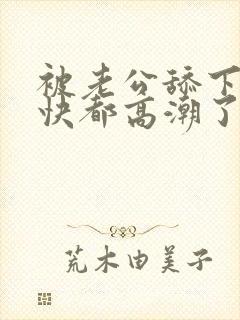 被老公舔下
快都高潮了
荒木由美子